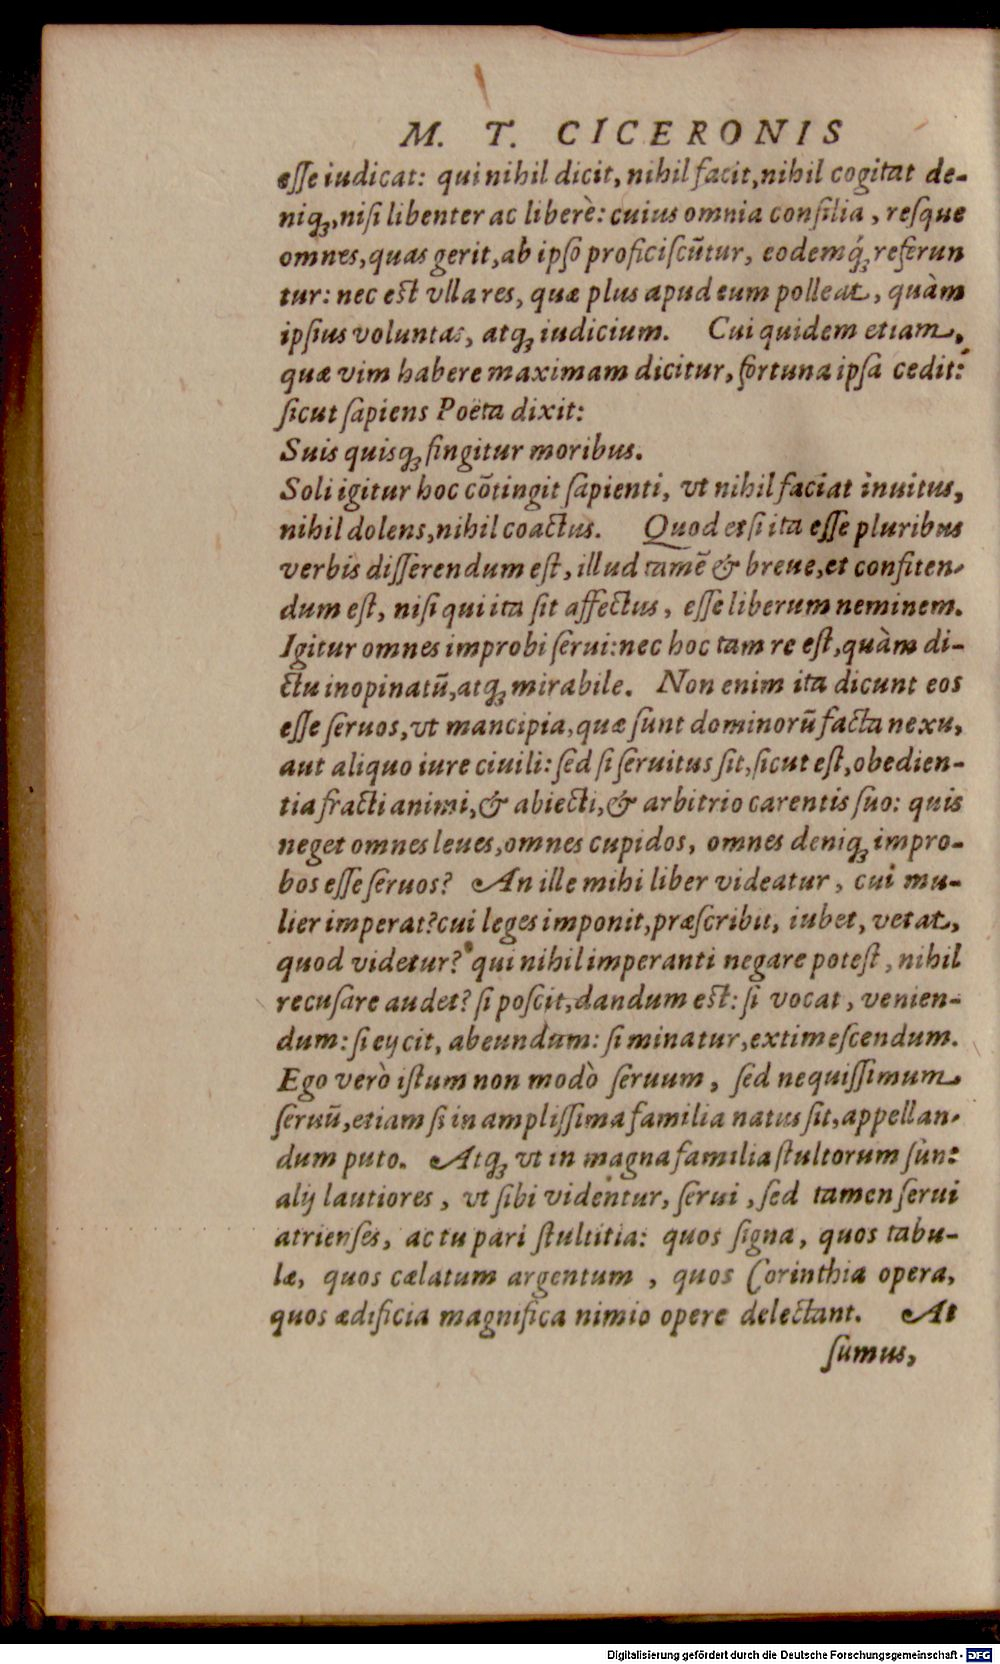 M. T. CICERONIS
eſſe iudicat: qui nihil dicit, nihil facit, nihil cogitat de-
niqꝫ, niſi libenter ac liberè: cuius omnia conſilia, reſque
omnes, quas gerit, ab ipſo proficiſcũtur, eodemq́ꝫ referun
tur: nec eſt vlla res, quæ plus apud eum polleat, quàm
ipſius voluntas, atqꝫ iudicium. Cui quidem etiam,
quæ vim habere maximam dicitur, fortuna ipſa cedit:
ſicut ſapiens Poëta dixit:
Suis quisqꝫ fingitur moribus.
Soli igitur hoc cõtingit ſapienti, vt nihil faciat inuitus,
nihil dolens, nihil coactus. Quod etſi ita eſſe pluribus
verbis diſſerendum eſt, illud tamẽ & breue, et confiten-
dum eſt, niſi qui ita ſit affectus, eſſe liberum neminem.
Igitur omnes improbi ſerui: nec hoc tam re eſt, quàm di-
ctu inopinatũ, atqꝫ mirabile. Non enim ita dicunt eos
eſſe ſeruos, vt mancipia, quæ ſunt dominorũ facta nexu,
aut aliquo iure ciuili: ſed ſi ſeruitus ſit, ſicut eſt, obedien-
tia fracti animi, & abiecti, & arbitrio carentis ſuo: quis
neget omnes leues, omnes cupidos, omnes deniqꝫ impro-
bos eſſe ſeruos? An ille mihi liber videatur, cui mu-
lier imperat? cui leges imponit, præſcribit, iubet, vetat,
quod videtur? qui nihil imperanti negare poteſt, nihil
recuſare audet? ſi poſcit, dandum eſt: ſi vocat, venien-
dum: ſi eycit, abeundum: ſi minatur, extimeſcendum.
Ego verò iſtum non modò ſeruum, ſed nequiſſimum
ſeruũ, etiam ſi in ampliſſima familia natus ſit, appellan-
dum puto. Atqꝫ vt in magna familia ſtultorum ſunt
alij lautiores, vt ſibi videntur, ſerui, ſed tamen ſerui
atrienſes, ac tu pari ſtultitia: quos ſigna, quos tabu-
læ, quos cælatum argentum, quos Corinthia opera,
quos ædificia magnifica nimio opere delectant. At
ſumus,
Digitalisierung gefördert durch die Deutsche Forschungsgemeinschaft - DFG